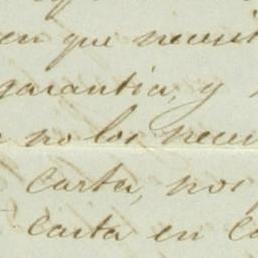 en que necesit
garantia, y
no los necesi
carta, nos
carta en c